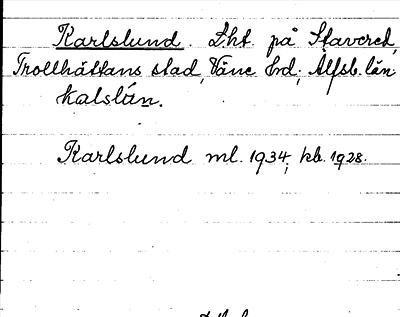 Karlslund. Lht. på Stavered,
Trollhättans stad, Väne hrd; Älfsb. län
kalslún.
Karlslund ml. 1934; kb. 1928.